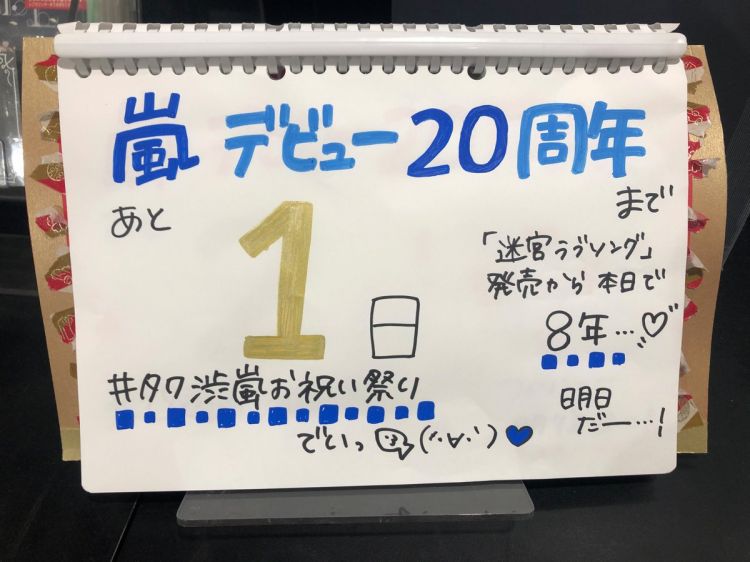 嵐 デビュー20周年
あと
まで
1日
「迷宮ラブソング」
発売から 本日で
8年…♡
#タワ渋嵐お祝い祭り
でといっ
(´∀`)💙
明日
だー…!